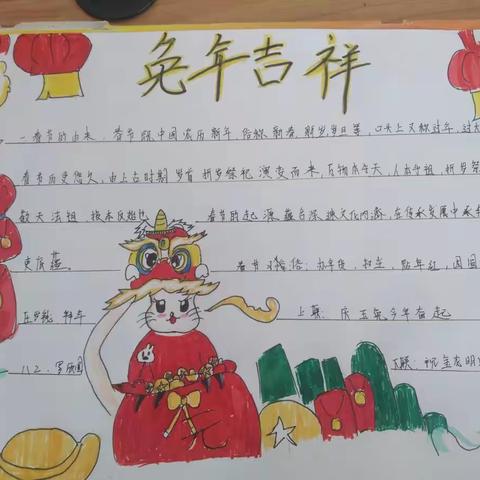 兔年吉祥
一春节的由来：春节既中国农历新年，俗称新春，新岁、岁旦等，口头上又称过年，过大
春节历史悠久，由上古时期岁首祈岁祭祀演变而来，万物本乎天，人本乎祖，祈岁祭
敬天法祖，报本反始也。春节的起源蕴含深邃文化内涵，在传承发展中承
史底蕴。春节习俗：办年货，扫尘，贴年红，团圆
压岁钱，拜年
上联：庆五气今年奋起
下联：祝金龙明